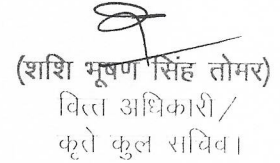 (शशि भूषण सिंह तोमर)
वित्त अधिकारी /
कृते कुल सचिव।